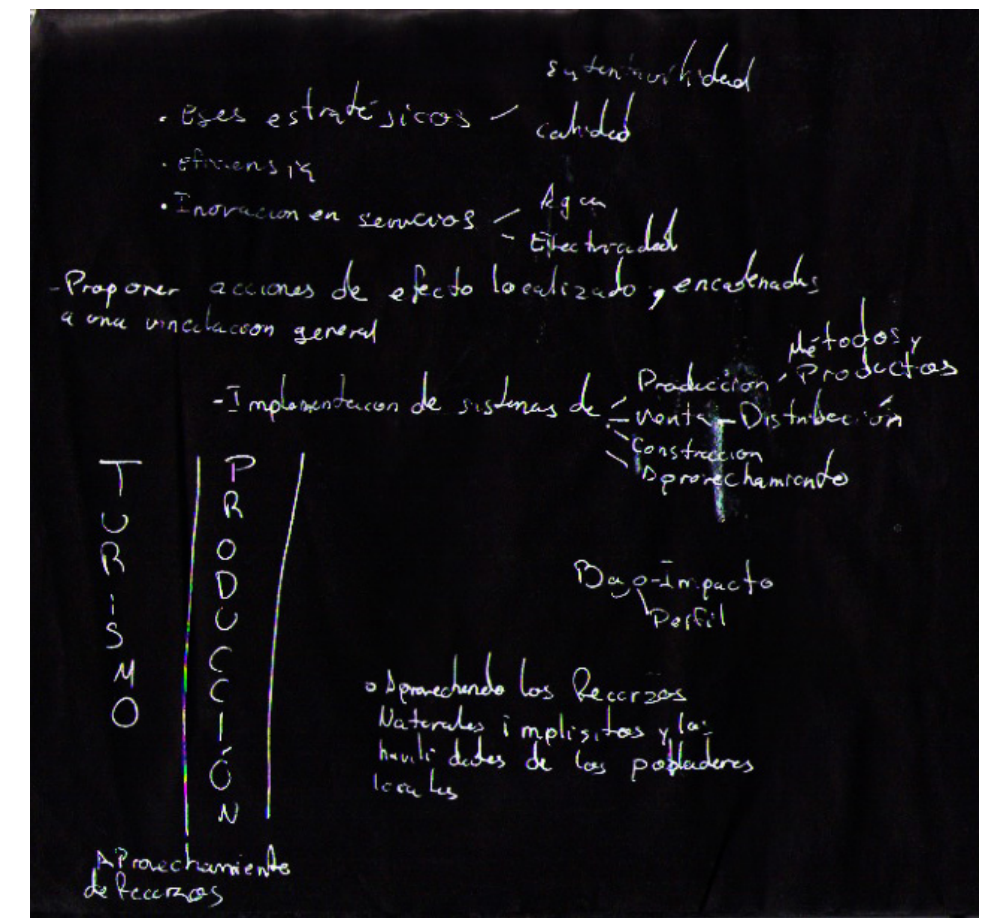 sustentavilidad
· Eges estratégicos - calidad
· Efiziensia
· Inovacion en servicios - Agua
- Electricidad
- Proponer acciones de efecto localizado y encadenadas
a una vinculacion general
Métodos y
Producción - Productos
- Implementacion de sistemas de - Venta - Distribución
Construccion
Aprovechamiento
TURISMO
PRODUCCIÓN
Bajo - Impacto
Perfil
o Aprovechando los Recurzos
Naturales implisitos y las
havilidades de los pobladores
locales
Aprovechamiento
de Recurzos